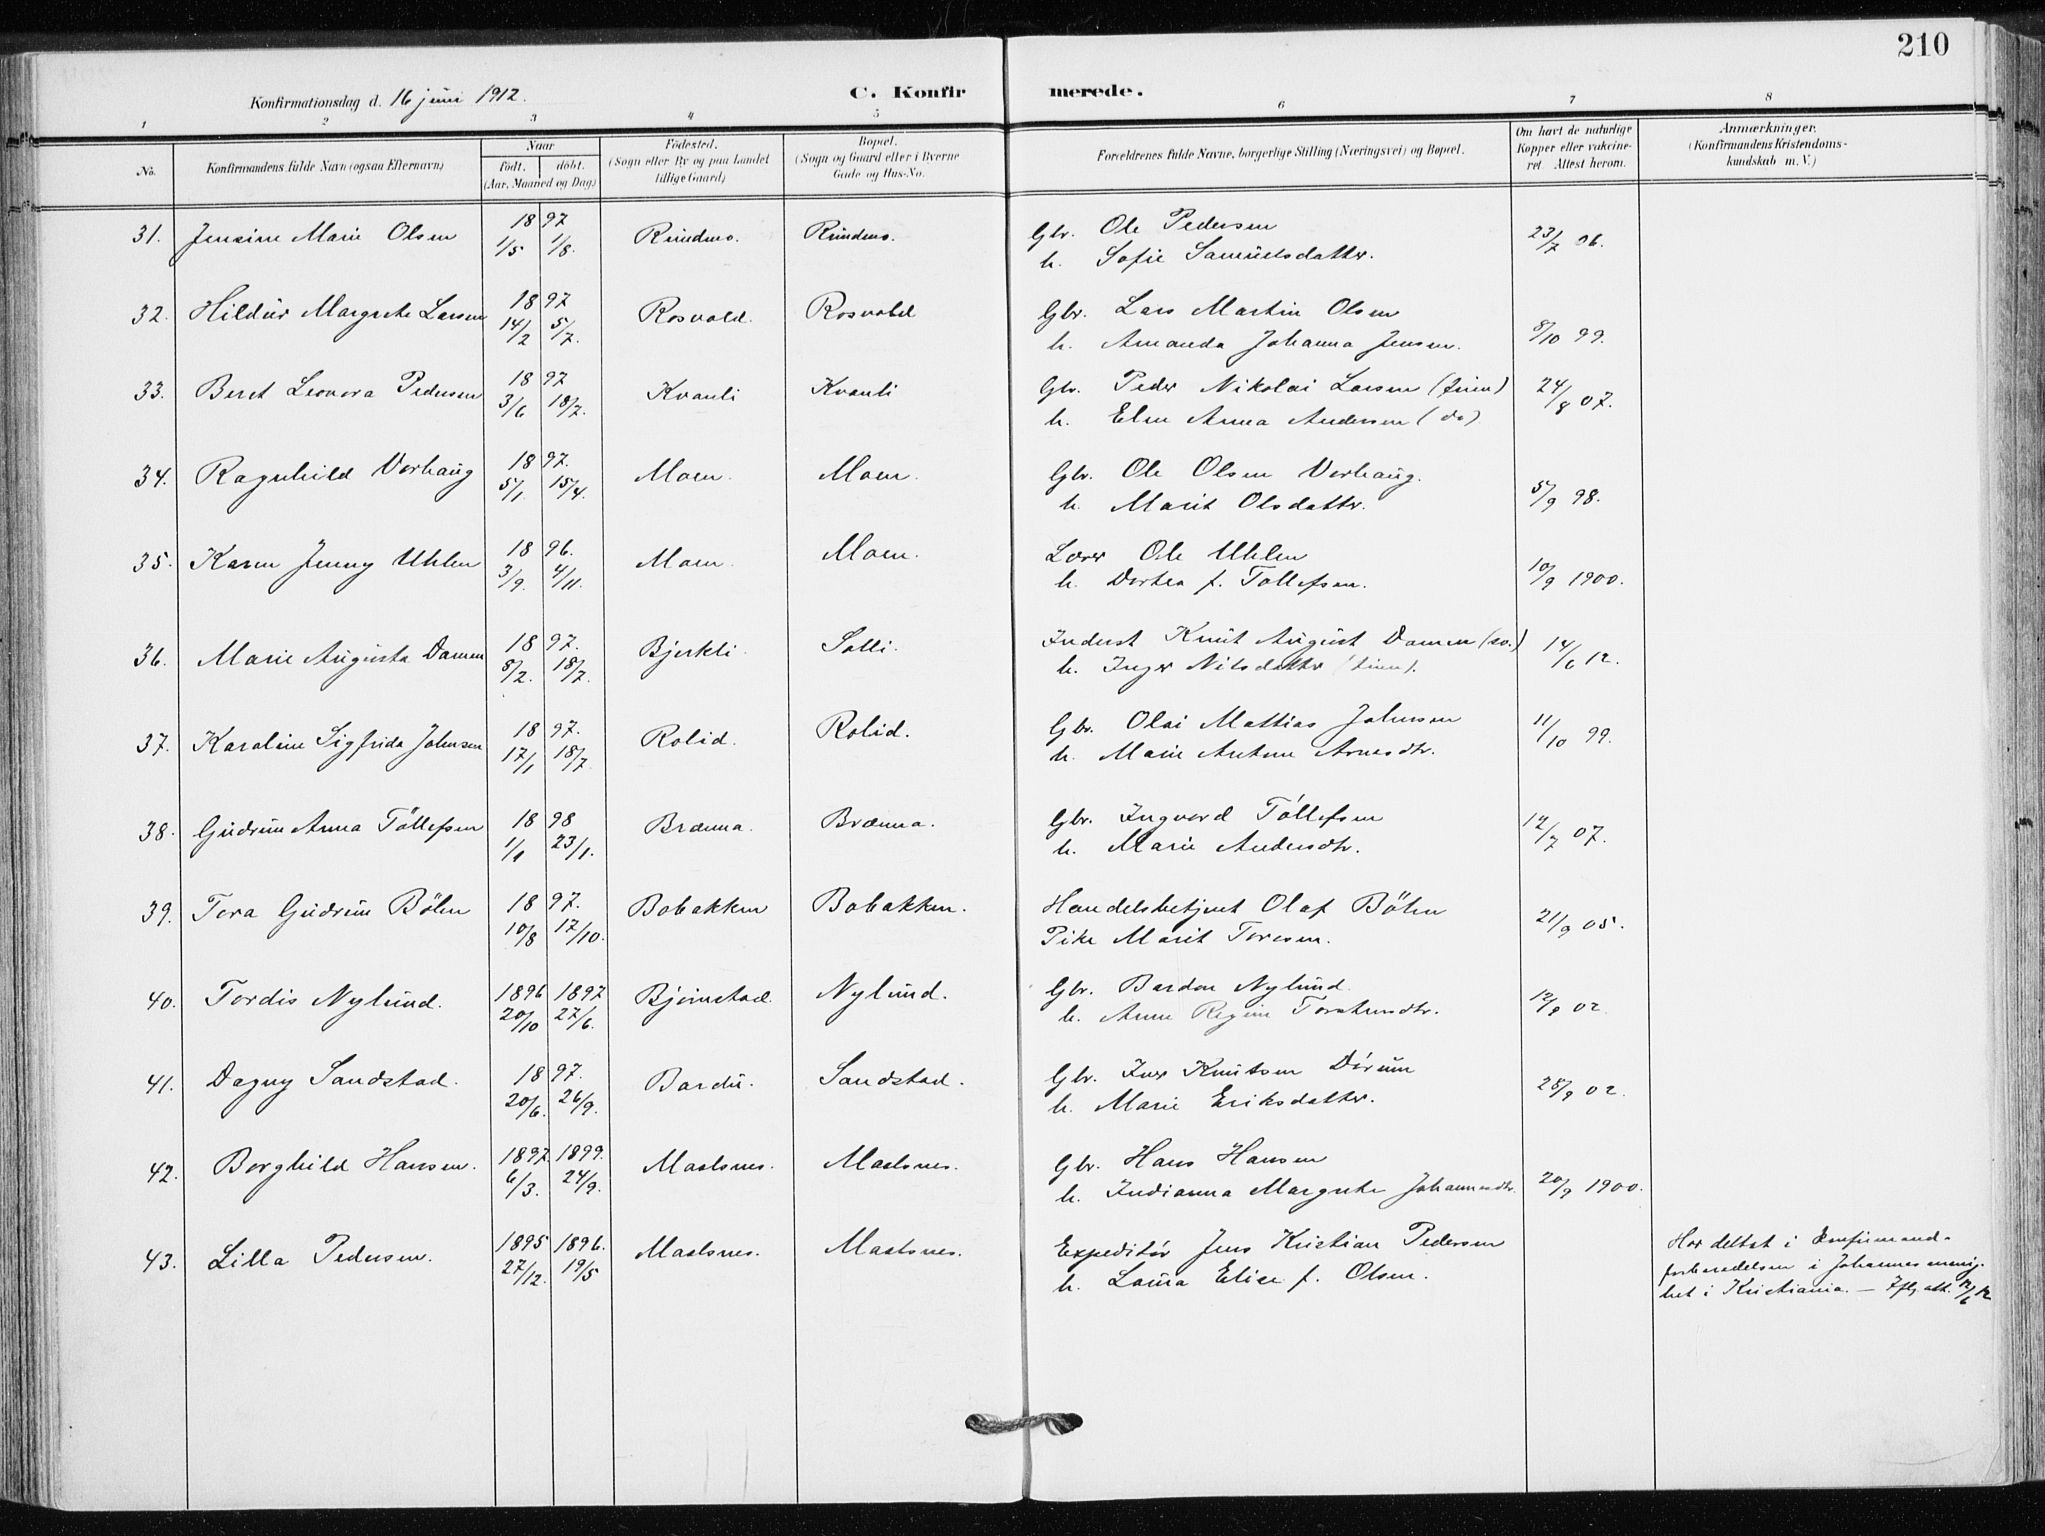 210
Konfirmationsdag d. 16 juni 1912.
C. Konfirmerede.
1 2 3 4 5 6 7 8
No.
Konfirmandens fulde Navn (ogsaa Efternavn)
Naar
födt. döbt.
(Aar, Maaned og Dag)
Födested.
(Sogn eller By og paa Landet
tillige Gaard)
Bopæl.
(Sogn og Gaard eller i Byerne
Gade og Hus-No.
Forældrenes fulde Navne, borgerlige Stilling (Næringsvei) og Bopæl.
Om havt de naturlige
Kopper eller vakcine-
ret. Attest herom.
Anmærkninger.
(Konfirmandens Kristendoms-
kundskab m. V.)
31. Jensine Marie Olsen 1897 1/5 1/8. Rundmo. Rundmo. Gbr. Ole Pedersen
h. Sofie Samuelsdatter. 23/7 06.
32. Hildur Margrete Larsen 1897 14/2 5/7. Rosvold. Rosvold Gbr. Lars Martin Olsen
h. Amanda Johanna Jensen. 8/10 99.
33. Beret Leonora Pedersen 1897 3/6 18/7. Kvanli Kvanli Gbr. Peder Nikolai Larsen (finn)
h. Elen Anna Andersen (do) 24/8 07.
34. Ragnhild Vorhaug 1897. 5/1. 15/4. Moen. Moen. Gbr. Ole Olsen Vorhaug.
h. Marit Olsdatter. 5/9 98.
35. Karen Jenny Uhlen 1896. 3/9. 4/11. Moen. Moen. Lærer Ole Uhlen
h. Dortea f. Tollefsen. 10/9 1900.
36. Marie Augusta Damen 1897. 8/2. 18/7. Bjerkli. Solli. Inderst Knut August Damen (sv.)
h. Inger Nilsdatter (finn). 14/6 12.
37. Karoline Sigfrida Johnsen 1897. 17/1 18/7. Rolid. Rolid. Gbr. Olai Mattias Johnsen
h. Marie Antone Arnesdtr. 11/10 99.
38. Gudrun Anna Töllefsen 1898 1/1 23/1. Brænna. Brænna. Gbr. Ingvard Töllefsen
h. Marie Andersdtr. 12/7 07.
39. Tora Gudrun Bölen 1897. 10/8 17/10. Bobakken Bobakken. Handelsbetjent Olaf Bölen
Pike Marit Toresen. 21/9 05.
40. Tordis Nylund. 1896 1897 20/10 27/6. Björnstad. Nylund. Gbr. Bardon Nylund.
h. Anne Regine Torstensdtr. 12/9 02.
41. Dagny Sandstad. 1897. 20/6. 26/9. Bardu. Sandstad. Gbr. Iver Knutsen Dörum
h. Marie Eriksdatter. 28/9 02.
42. Borghild Hansen. 1897. 1899. 6/3. 24/9. Maalsnes. Maalsnes. Gbr. Hans Hansen
h. Indianna Margrete Johannesdtr. 20/9 1900.
43. Lilla Pedersen. 1895 1896. 27/12. 19/5 Maalsnes. Maalsnes. Expeditör Jens Kristian Pedersen
h. Laura Elise f. Olsen.
Har deltat i konfirmand-
forberedelsen i Johannes menig-
het i Kristiania. — Iflg. att. 12/6 12